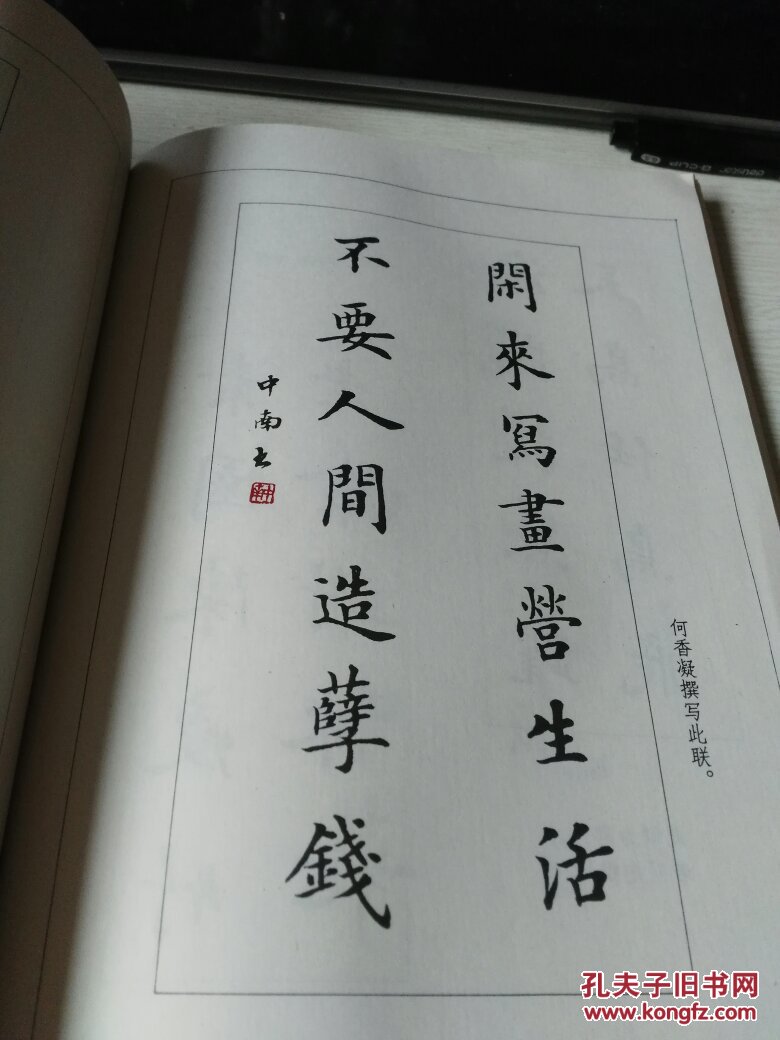 閑來寫畫營生活
不要人間造孽錢
中南书
何香凝撰写此联。
G-CLIP
孔夫子旧书网
www.kongfz.com